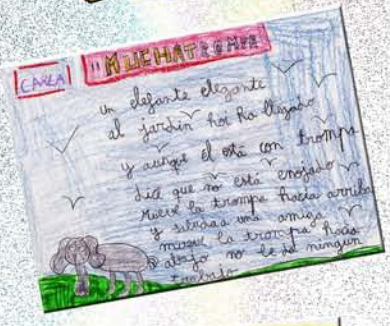 CARLA
"MUCHATROMPA"
un elefante elegante
al jardín hoi ha llegado
y aunqe el está con trompa
dice que no está enojado
mueve la trompa hacia arriba
y saluda una amiga
mueve la trompa hacia
abajo no le da ningun
trabajo